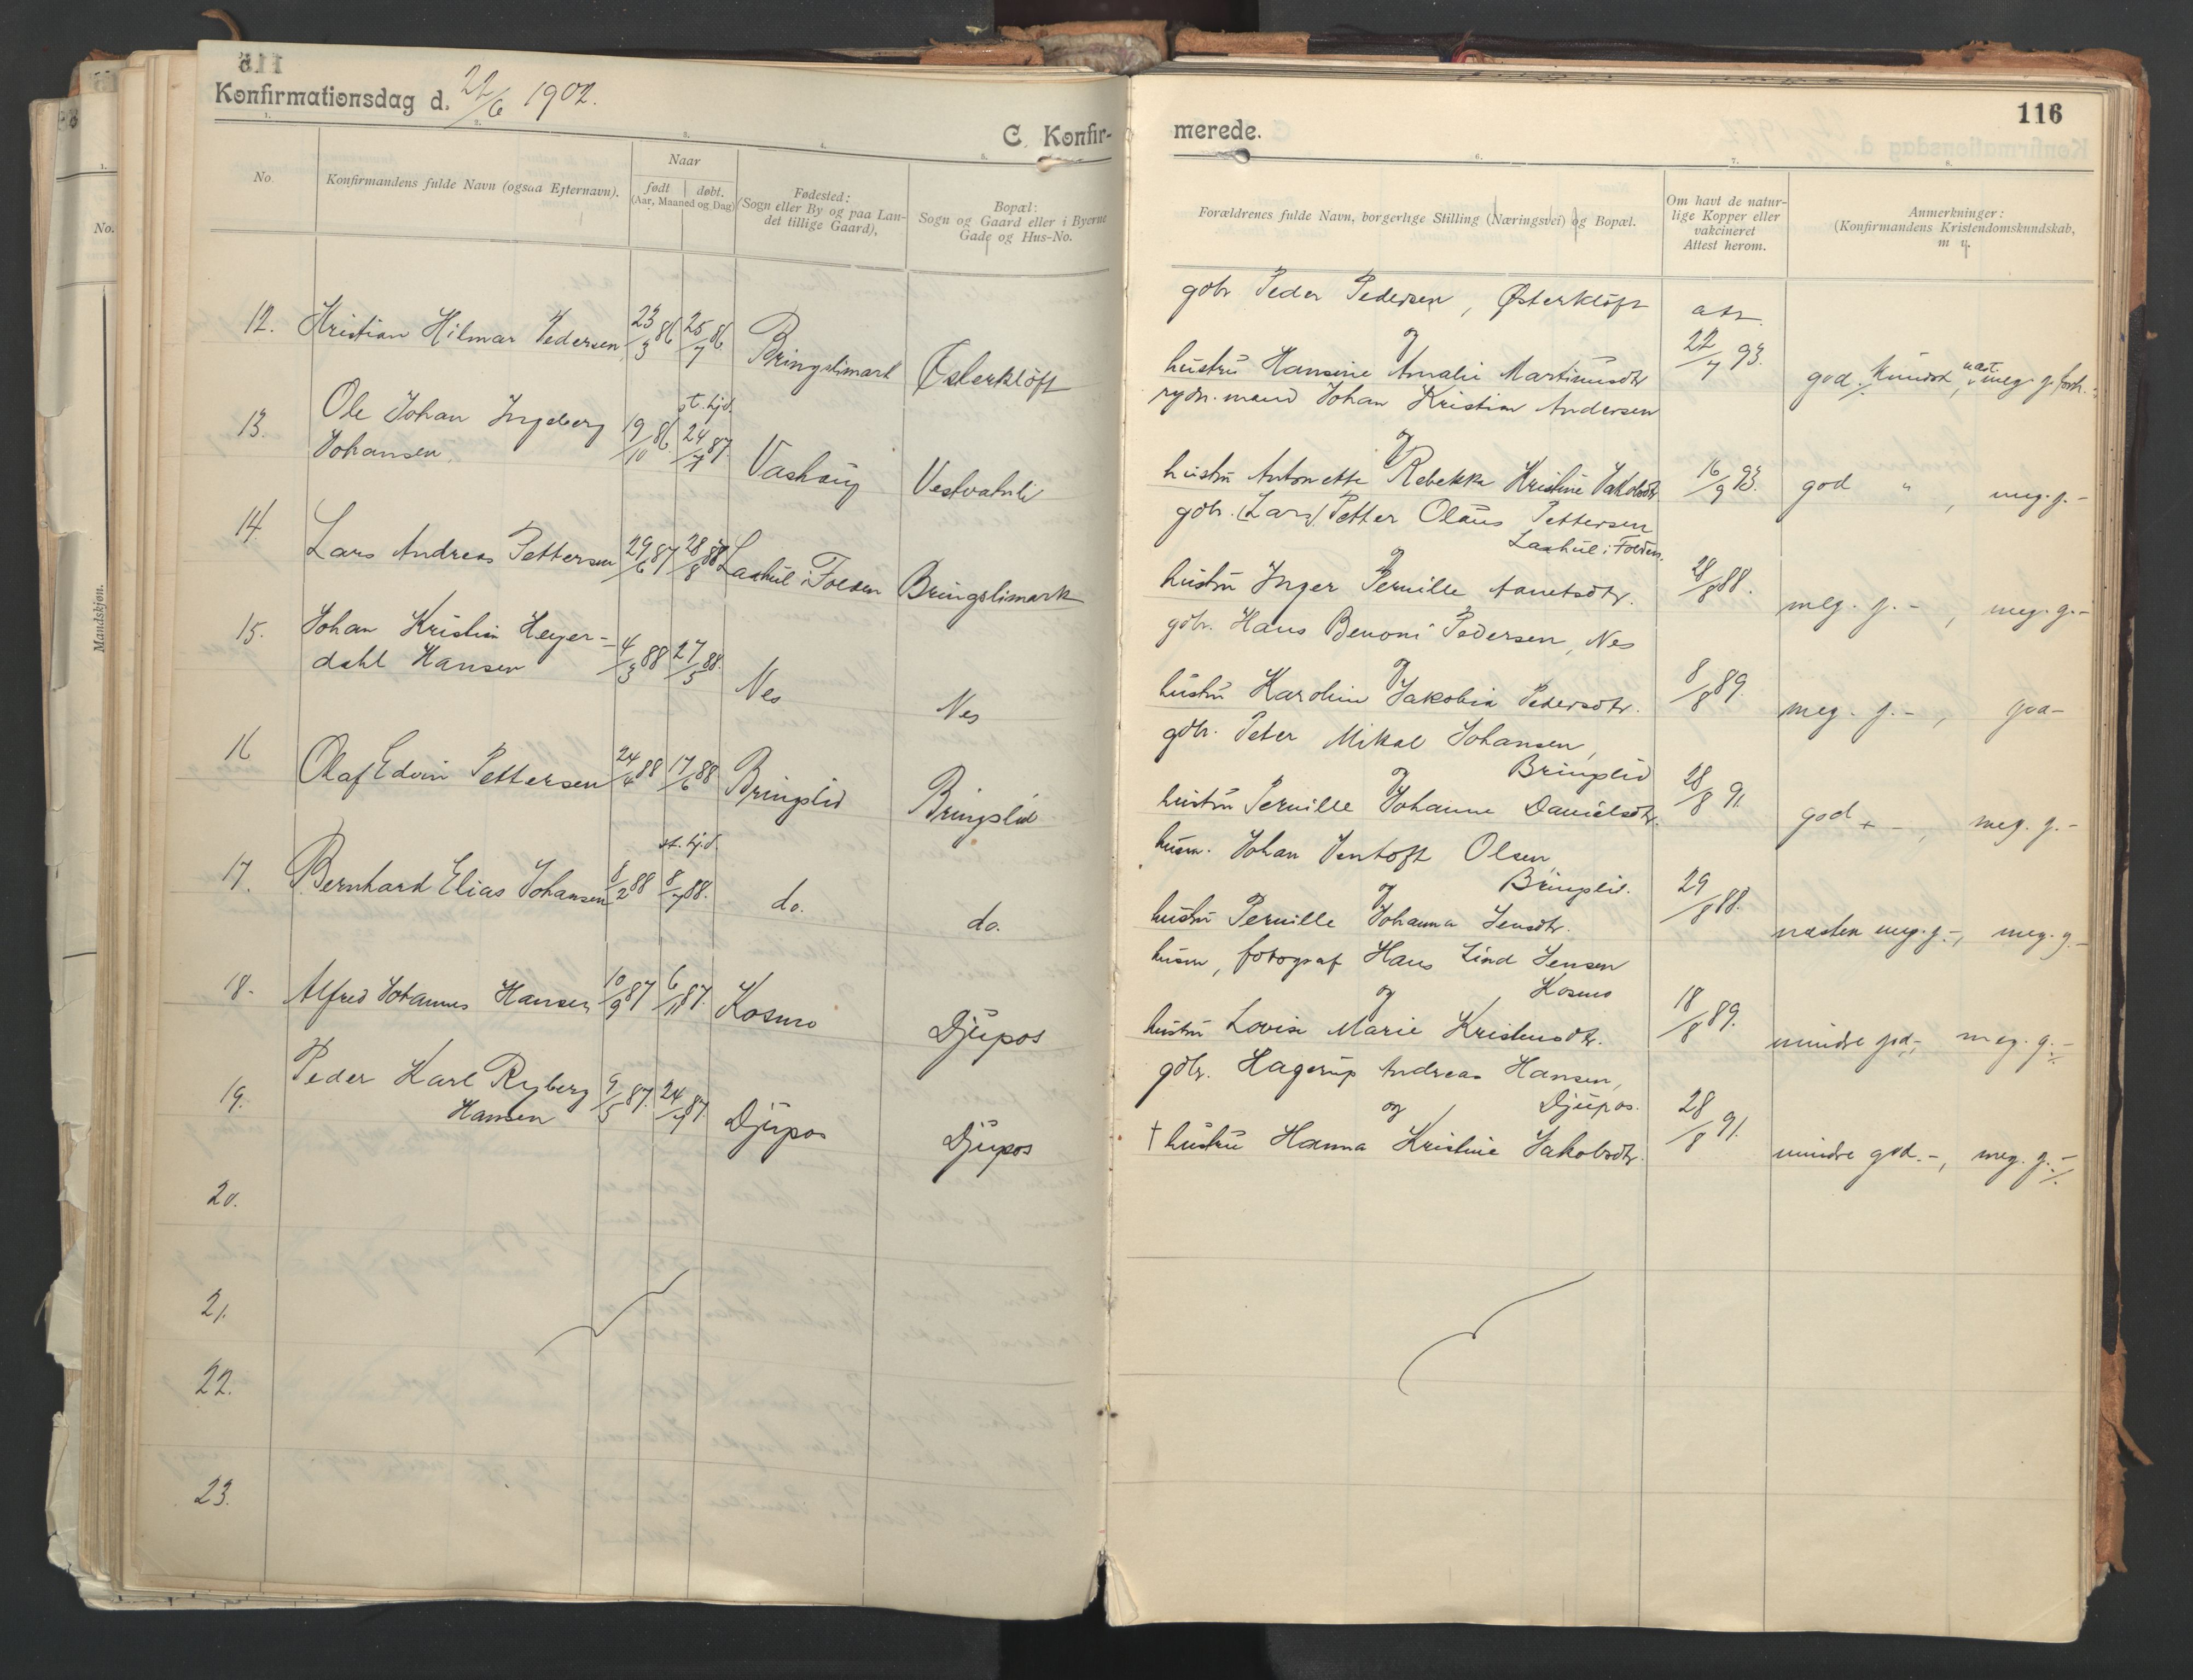 Konfirmationsdag d. 22/6 1902.
C. Konfir-
No.
Konfirmandens fulde Navn (ogsaa Efternavn).
Naar
født | døbt.
(Aar, Maaned og Dag)
Fødested:
(Sogn eller By og paa Lan-
det tillige Gaard),
Bopæl:
Sogn og Gaard eller i Byerne
Gade og Hus-No.
12. Kristian Hilmar Pedersen 23/3 86 25/7 86 Bringslimark Østerkløft
13. Ole Johan Ingeberg Johansen 19/10 86 st. hjd. 24/7 87. Vashaug Vestvatnli
14. Lars Andreas Pettersen 29/6 87 28/8 88 Laxhul i Folden Bringslimark
15. Johan Kristian Heyer-
dahl Hansen 4/3 88 27/5 88. Nes Nes
16 Olaf Edvin Pettersen 24/4 88 17/6 88. Bringslid Bringslid
17. Bernhard Elias Johansen 8/2 88 st. hj.d. 8/7 88. do. do.
18. Alfred Johannes Hansen 10/9 87 6/11 87. Kosmo Djupos
19. Peder Karl Ryberg
Hansen 9/5 87. 24/7 87. Djupos Djupos
20.
21.
22.
23.
merede.
116
Forældrenes fulde Navn, borgerlige Stilling (Næringsvei) og Bopæl.
Om havt de natur-
lige Kopper eller
vakcineret
Attest herom.
Anmerkninger:
(Konfirmandens Kristendomskundskab,
m. v.
gbr Peder Pedersen, Østerkløft
og
hustru Hansine Amalie Martinusdtr 22/7 93. god kundsk, næst. meg. g. forh.
rydn.mand Johan Kristian Andersen
og
hustru Antonette Rebekka Kristine Jakobsdtr 16/9 93. god " , meg. g. -
gbr. (Lars) Petter Olaus Pettersen
Laxhul i Folden.
og
hustru Inger Pernille 28/8 88. meg. g. - , meg. g. -
gbr. Hans Benoni Pedersen, Nes
og
hustru Karoline Jakobia Pedersdtr. 8/8 89. meg. g. - , god -
gbr. Peter Mikal Johansen,
og Bringslid
hustru Pernille Johanne Danielsdtr. 28/8 91. god - , meg. g. -
husm. Johan Jentoft Olsen,
og Bringslid.
hustru Pernille Johanna Jensdtr. 29/8 88. næsten meg. g. -, meg. g. -
husm, fotograf Hans Lind Jensen
og Kosmo
hustru Lovise Marie Kristensdtr. 18/8 89. mindre god -, meg. g. -
gbr. Hagerup Andreas Hansen,
og Djupos.
† hustru Hanna Kristine Jakobsdtr. 28/8 91. mindre god. -, meg. g. -
No.
1.
Mandskjøn.